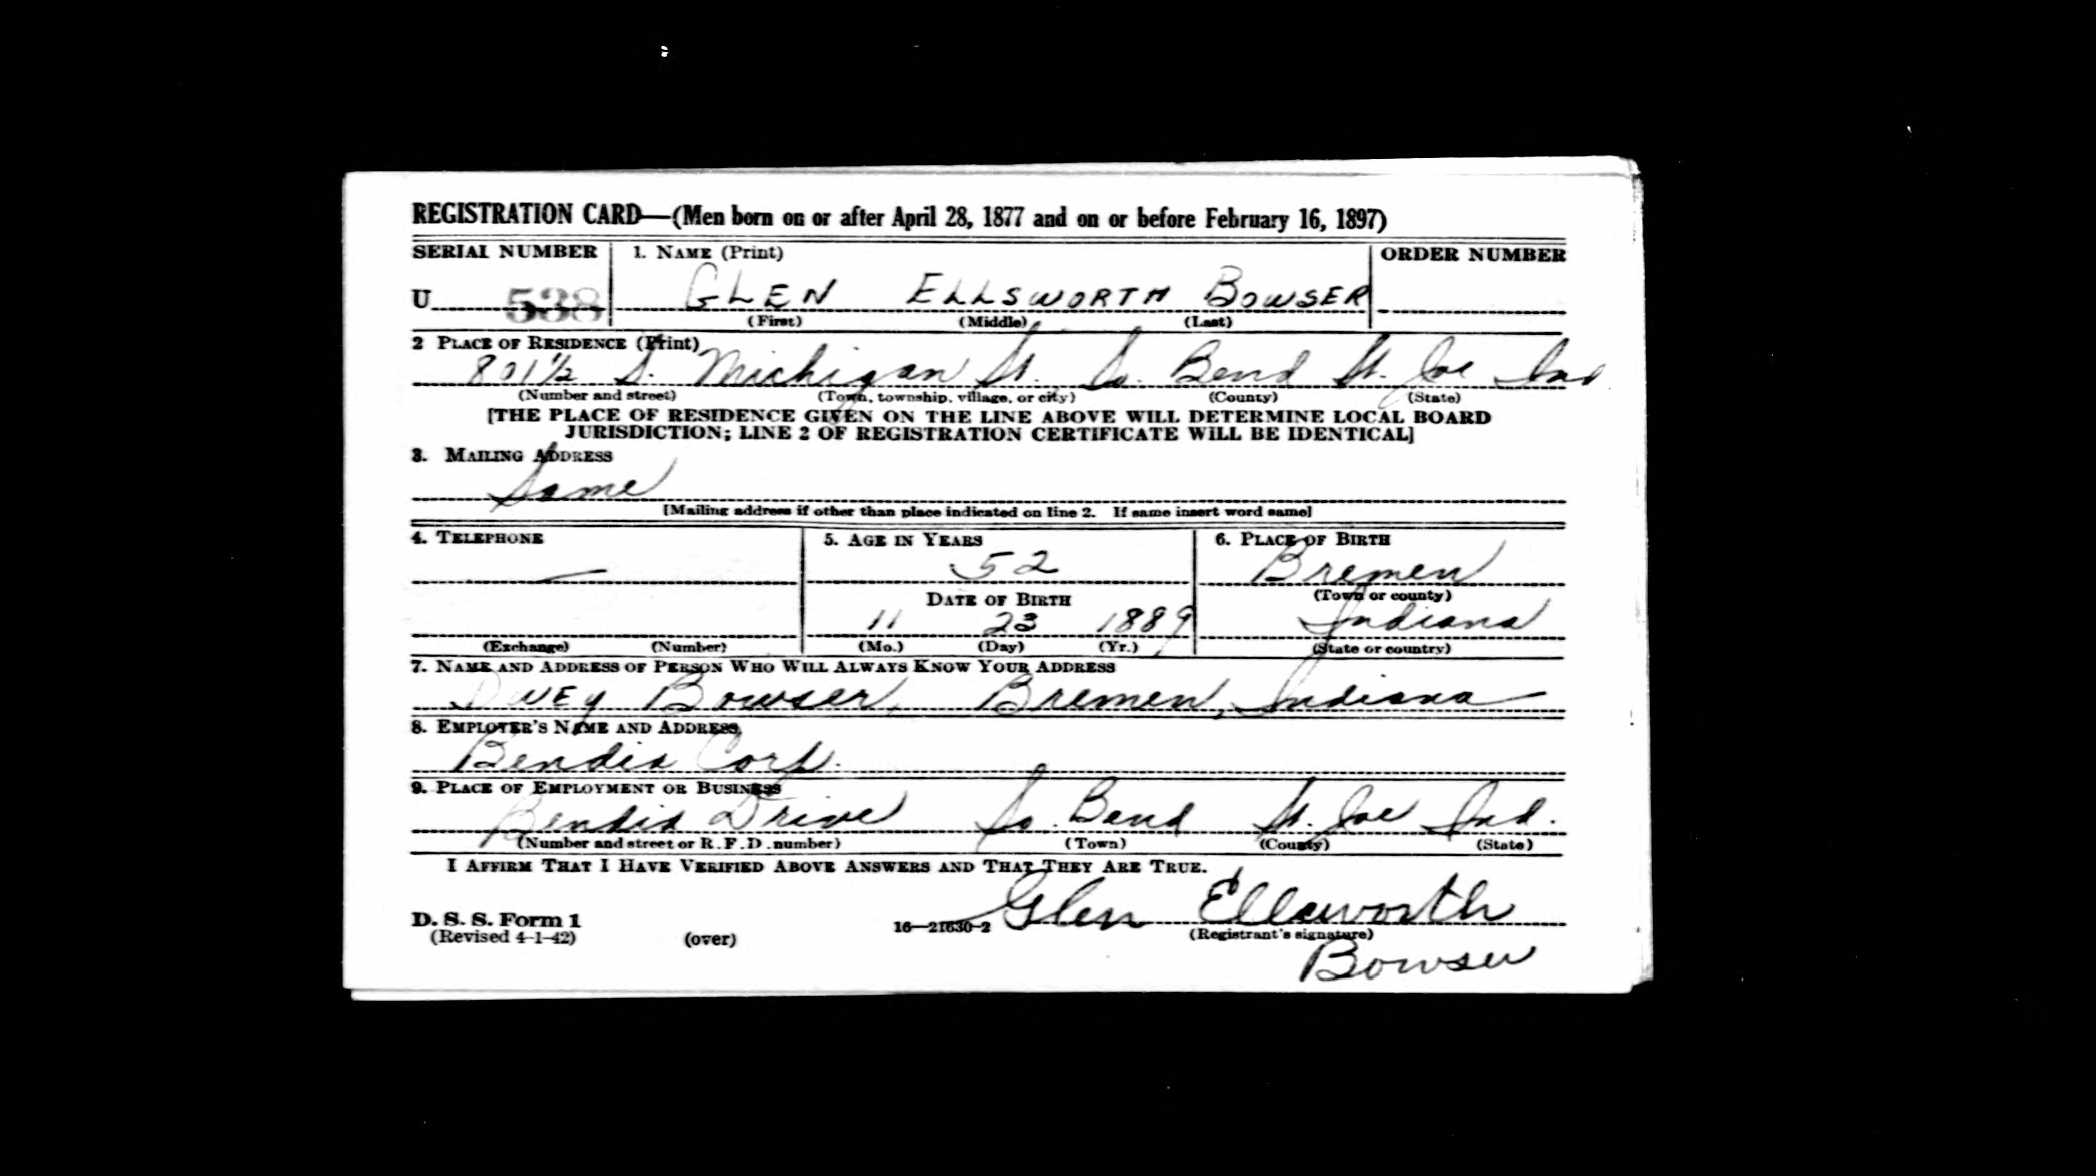 REGISTRATION CARD—(Men born on or after April 28, 1877 and on or before February 16, 1897)
SERIAL NUMBER 1. NAME (Print) ORDER NUMBER
U 538 GLEN ELLSWORTH BOWSER
(First) (Middle) (Last)
2 PLACE OF RESIDENCE (Print)
801½ S. Michigan St. So. Bend St. Joe Ind
(Number and street) (Town, township, village, or city) (County) (State)
[THE PLACE OF RESIDENCE GIVEN ON THE LINE ABOVE WILL DETERMINE LOCAL BOARD
JURISDICTION; LINE 2 OF REGISTRATION CERTIFICATE WILL BE IDENTICAL]
3. MAILING ADDRESS
Same
[Mailing address if other than place indicated on line 2. If same insert word same]
4. TELEPHONE 5. AGE IN YEARS 6. PLACE OF BIRTH
— 52 Bremen
DATE OF BIRTH (Town or county)
11 23 1889 Indiana
(Exchange) (Number) (Mo.) (Day) (Yr.) (State or country)
7. NAME AND ADDRESS OF PERSON WHO WILL ALWAYS KNOW YOUR ADDRESS
Bowser, Bremen, Indiana
8. EMPLOYER'S NAME AND ADDRESS
Bendix Corp.
9. PLACE OF EMPLOYMENT OR BUSINESS
Bendix Drive So. Bend St. Joe Ind.
(Number and street or R. F. D. number) (Town) (County) (State)
I AFFIRM THAT I HAVE VERIFIED ABOVE ANSWERS AND THAT THEY ARE TRUE.
Glen Ellsworth
D. S. S. Form 1 16—21630-2 (Registrant's signature)
(Revised 4-1-42) (over)
Bowser